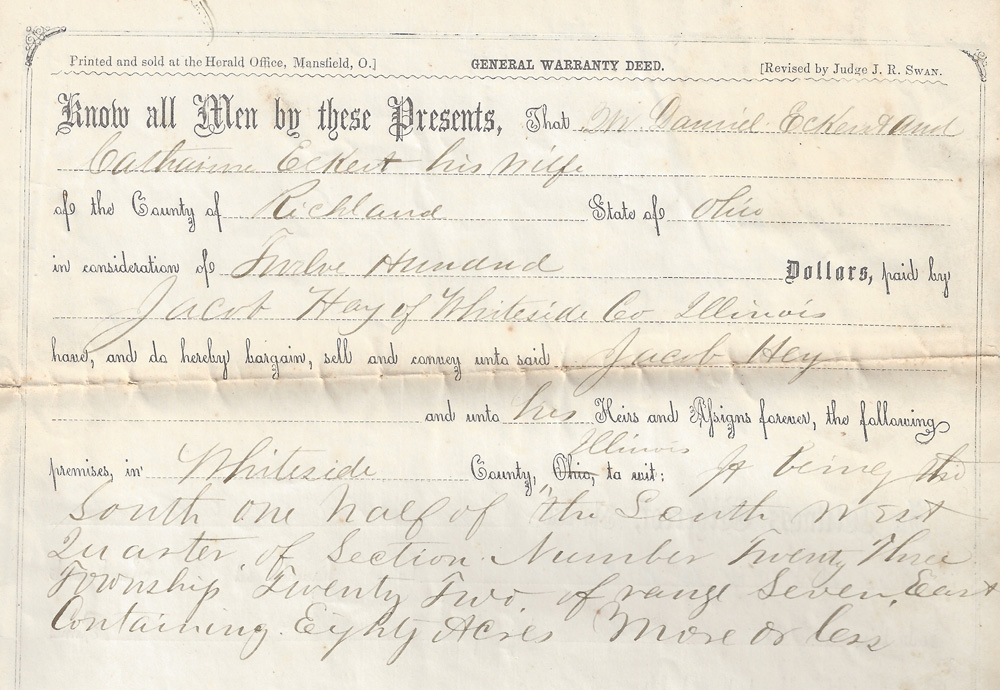 Printed and sold at the Herald Office, Mansfield, O.] GENERAL WARRANTY DEED. [Revised by Judge J. R. SWAN.
Know all Men by these Presents, That Daniel Eckert and
Catharine Eckert his wife
of the County of Richland State of Ohio
in consideration of Twelve Hundred Dollars, paid by
Jacob Hay of Whiteside Co Illinois
have, and do hereby bargain, sell and convey unto said Jacob Hey
and unto his Heirs and Assigns forever, the following
Illinois
premises, in Whiteside County, Ohio, to wit: It being the
South one half of "the South West
Quarter of Section Number Twenty Three
Township Twenty Two of range Seven East
Containing Eighty Acres More or less